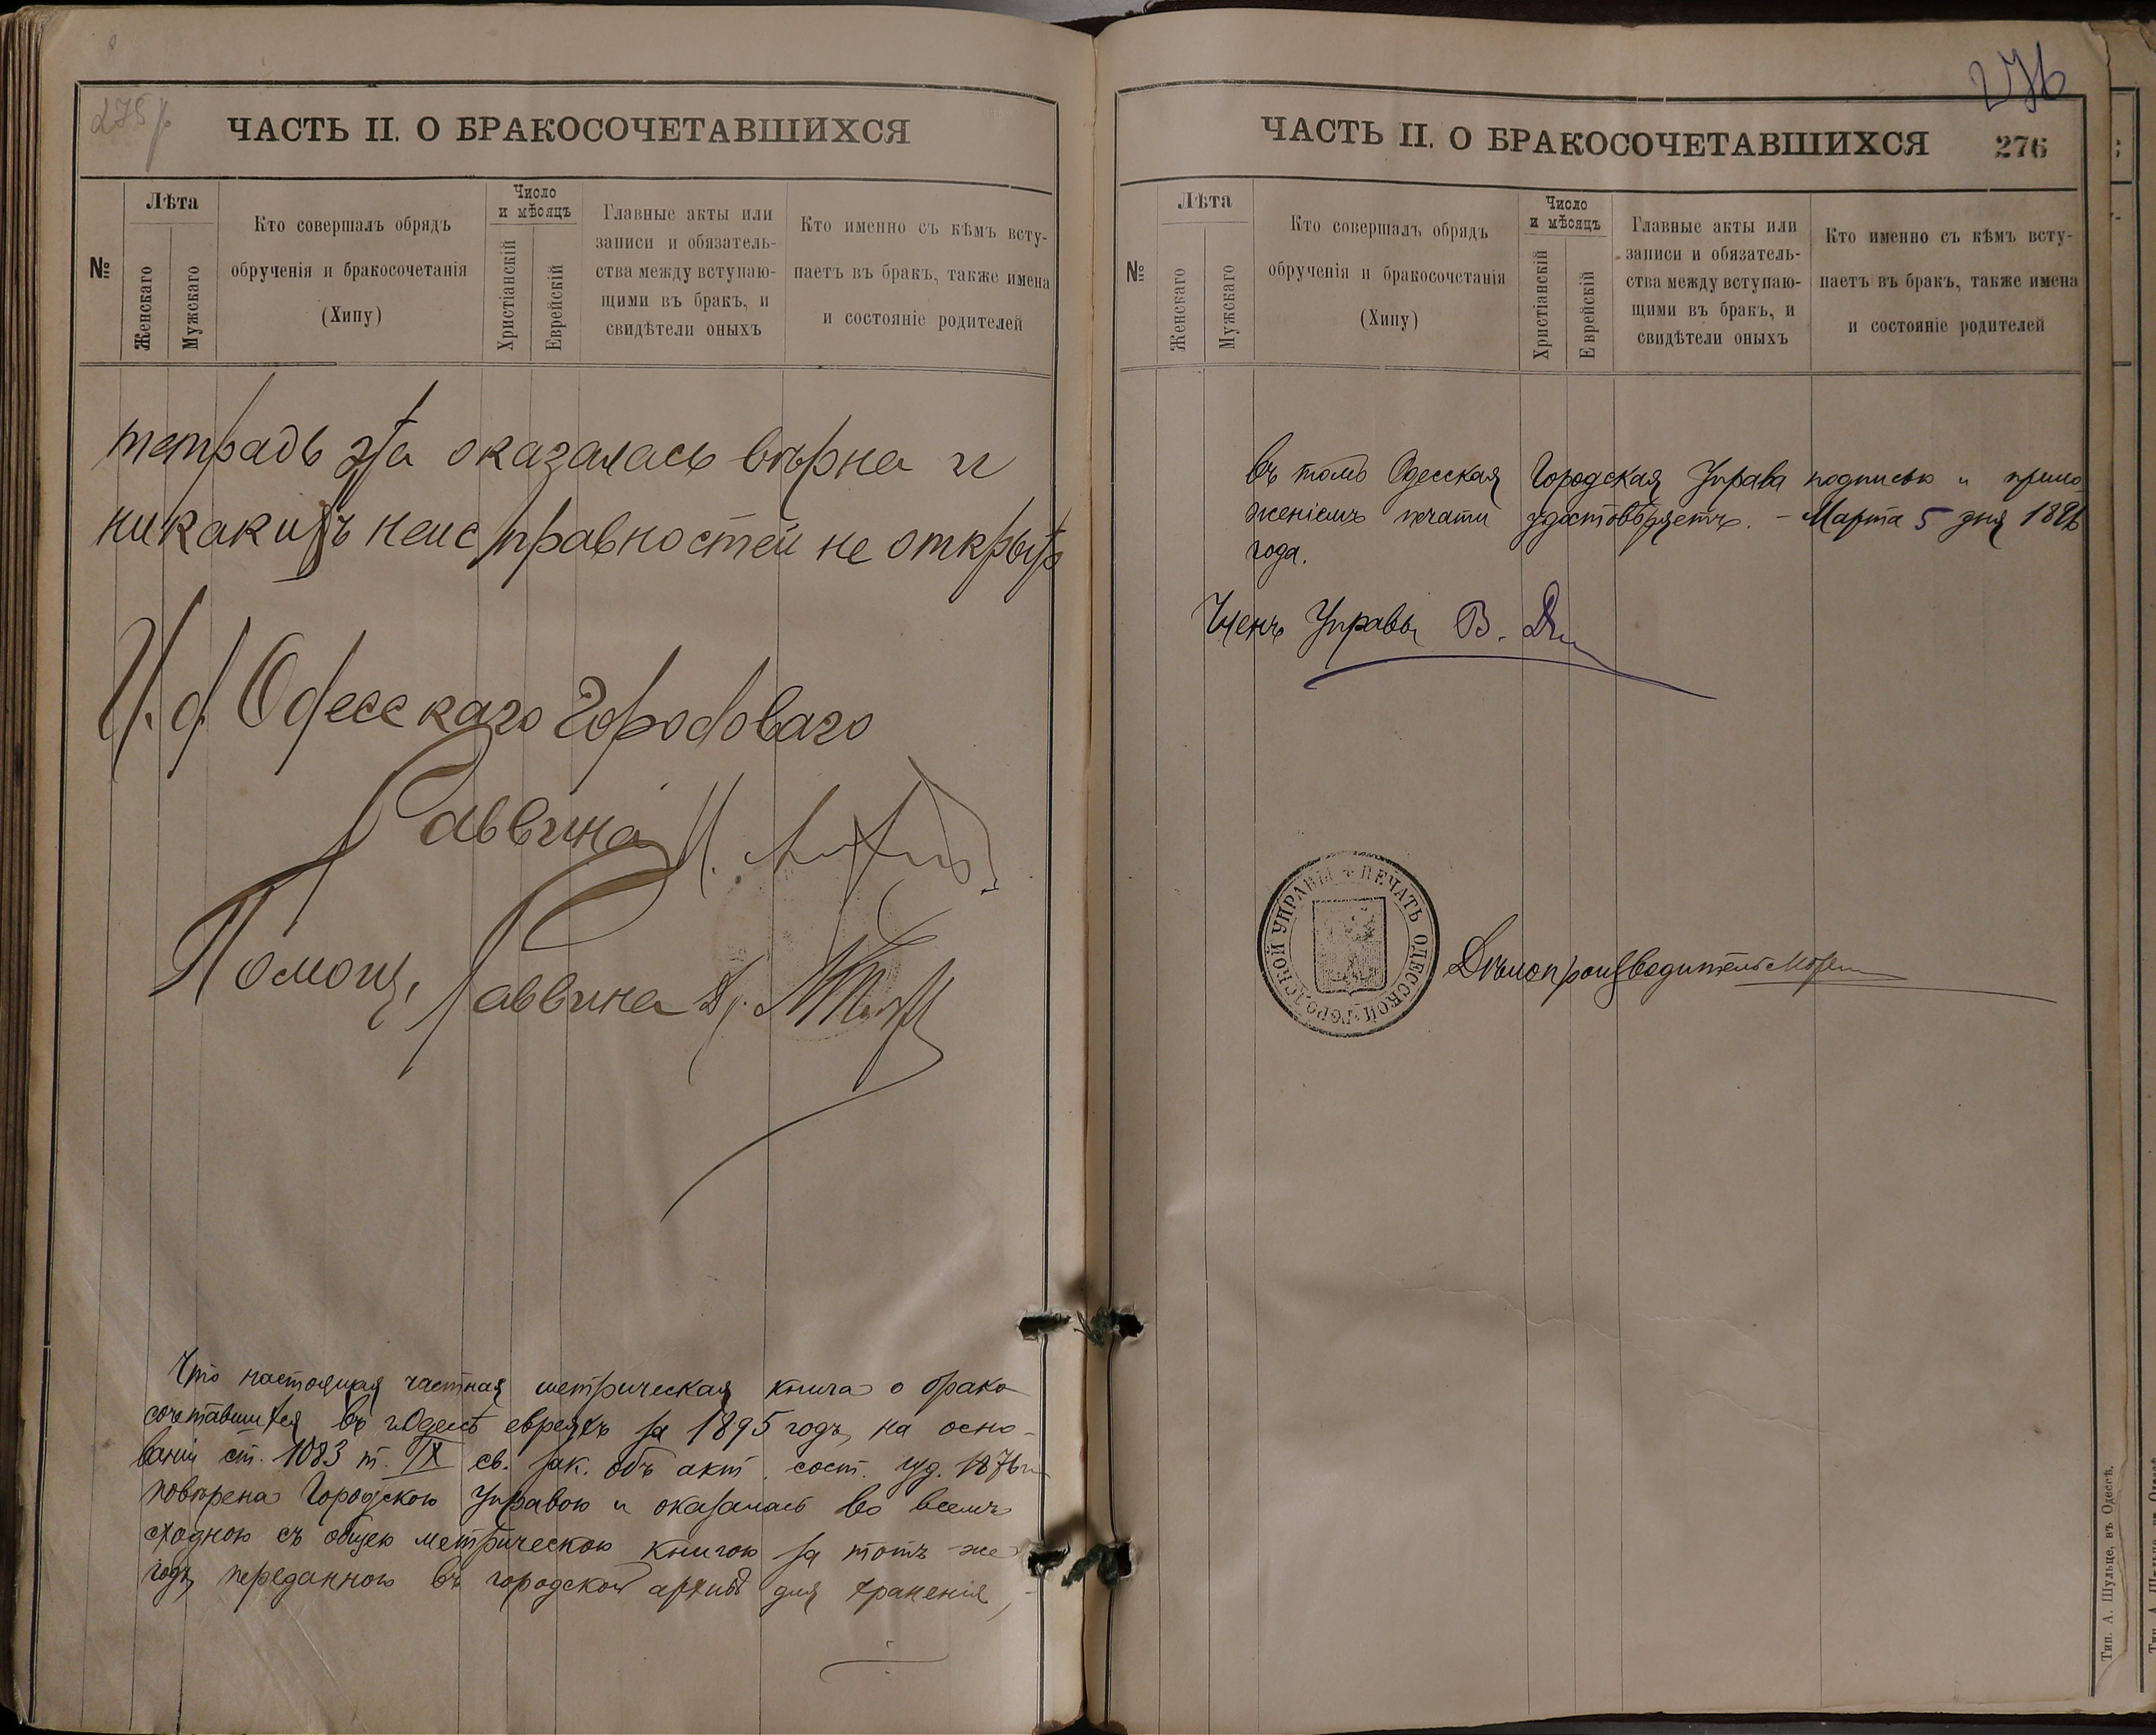 275
ЧАСТЬ II. О БРАКОСОЧЕТАВШИХСЯ
№
Лѣта
Женскаго
Мужскаго
Кто совершалъ обрядъ
обрученія и бракосочетанія
(Хипу)
Число
и мѣсяцъ
Христіанскій
Еврейскій
Главные акты или
записи и обязатель-
ства между вступаю-
щими въ бракъ, и
свидѣтели оныхъ
Кто именно съ кѣмъ всту-
паетъ въ бракъ, также имена
и состояніе родителей
тетрадь эта оказалась вѣрна и
никакихъ неисправностей не открыто
И. д. Одесскаго Городоваго
Раввина
Помощ. Раввина
Что настоящая частная метрическая книга о брако
сочетавшихся въ г. Одессѣ евреяхъ за 1895 годъ, на осно-
ваніи ст. 1083 т. IX св. зак. объ акт. сост. изд. 1876 г.
повѣрена Городскою Управою и оказалась во всемъ
сходною съ общею метрическою книгою за тотъ же
годъ, переданною въ городской архивъ для храненія, -
276
ЧАСТЬ II. О БРАКОСОЧЕТАВШИХСЯ
276
№
Лѣта
Женскаго
Мужскаго
Кто совершалъ обрядъ
обрученія и бракосочетанія
(Хипу)
Число
и мѣсяцъ
Христіанскій
Еврейскій
Главные акты или
записи и обязатель-
ства между вступаю-
щими въ бракъ, и
свидѣтели оныхъ
Кто именно съ кѣмъ всту-
паетъ въ бракъ, также имена
и состояніе родителей
въ томъ Одесская Городская Управа подписью и прило
женіемъ печати удостовѣряетъ. - Марта 5 дня 1896
года.
Членъ Управы В.
ПЕЧАТЬ ОДЕССКОЙ ГОРОДСКОЙ УПРАВЫ
Дѣлопроизводитель
Тип. А. Шульце, въ Одессѣ.